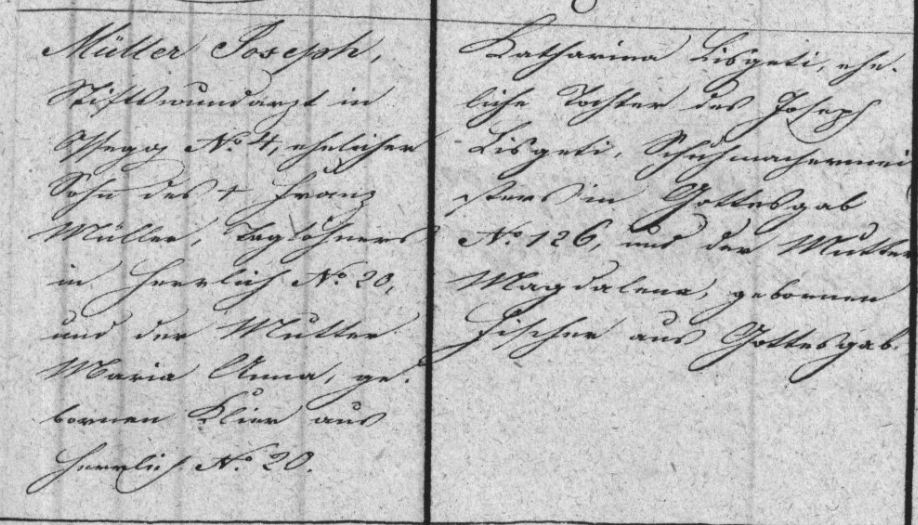 Müller Joseph,
Stiftswundarzt in
Ossegg No. 4, ehelicher
Sohn des + Franz
Müller, Taglöhners
in Herrlich No. 20,
und der Mutter
Maria Anna, ge-
bornen Klier aus
Herrlich No. 20.
Katharina Lisgeti, ehe-
liche Tochter des Joseph
Lisgeti, Schuhmachermei
sters in Gottesgab
No. 126, und der Mutter
Magdalena, gebornen
Fischer aus Gottesgab.